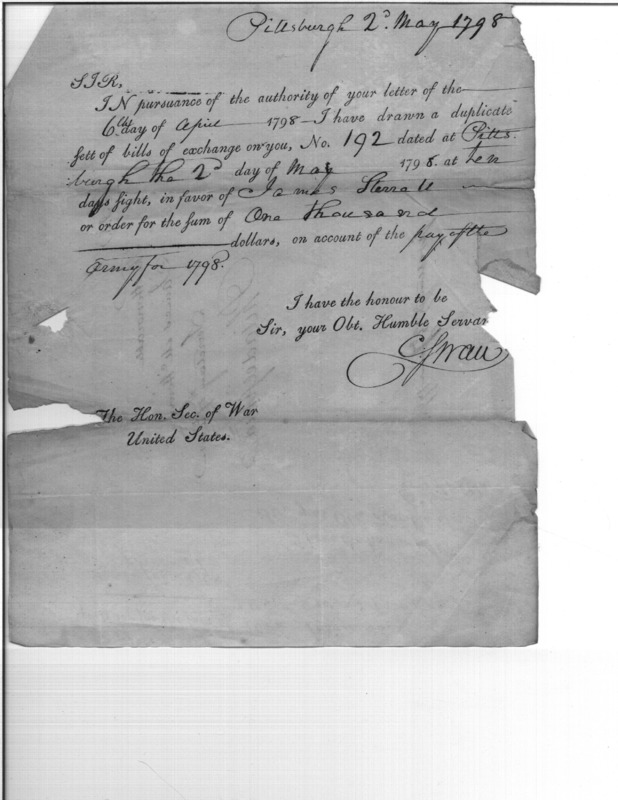 Pittsburgh 2d. May 1798
SIR,
IN pursuance of the authority of your letter of the
6th day of April 1798 I have drawn a duplicate
sett of bills of exchange on you, No. 192 dated at Pitts-
burgh the 2d day of May 1798. at ten
days sight, in favor of James Sterrett
or order for the sum of One thousand
dollars, on account of the pay of the
Army for 1798.
I have the honour to be
Sir, your Obt. Humble Servan
C Swan
The Hon. Sec. of War
United States.